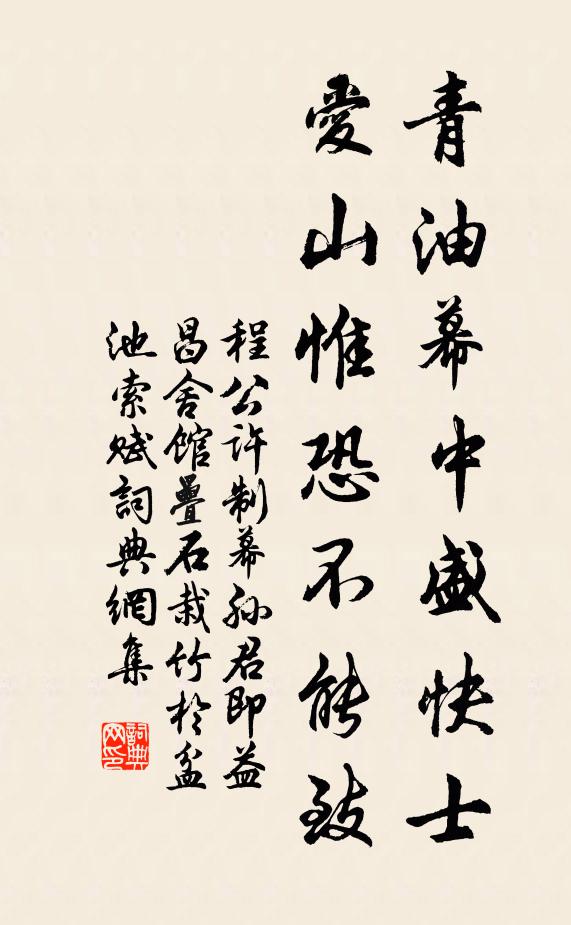 青油幕中盛快士
愛山惟恐不能致
程公許制幕孫君即益
昌舍館疊石栽竹於盆
池索賦詞典網集
詞典網印